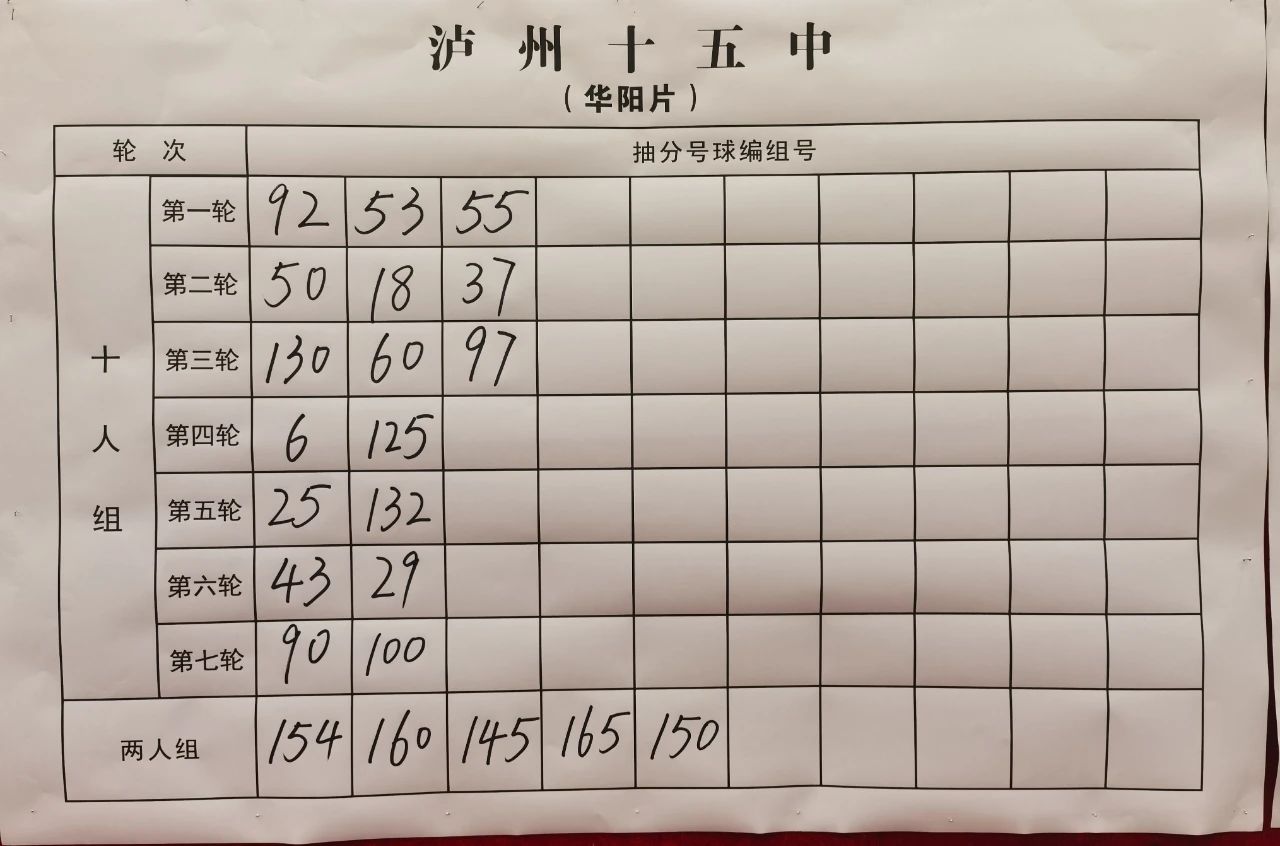 泸州十五中
（华阳片）
轮次 抽分号球编组号
十人组
第一轮 92 53 55
第二轮 50 18 37
第三轮 130 60 97
第四轮 6 125
第五轮 25 132
第六轮 43 29
第七轮 90 100
两人组 154 160 145 165 150